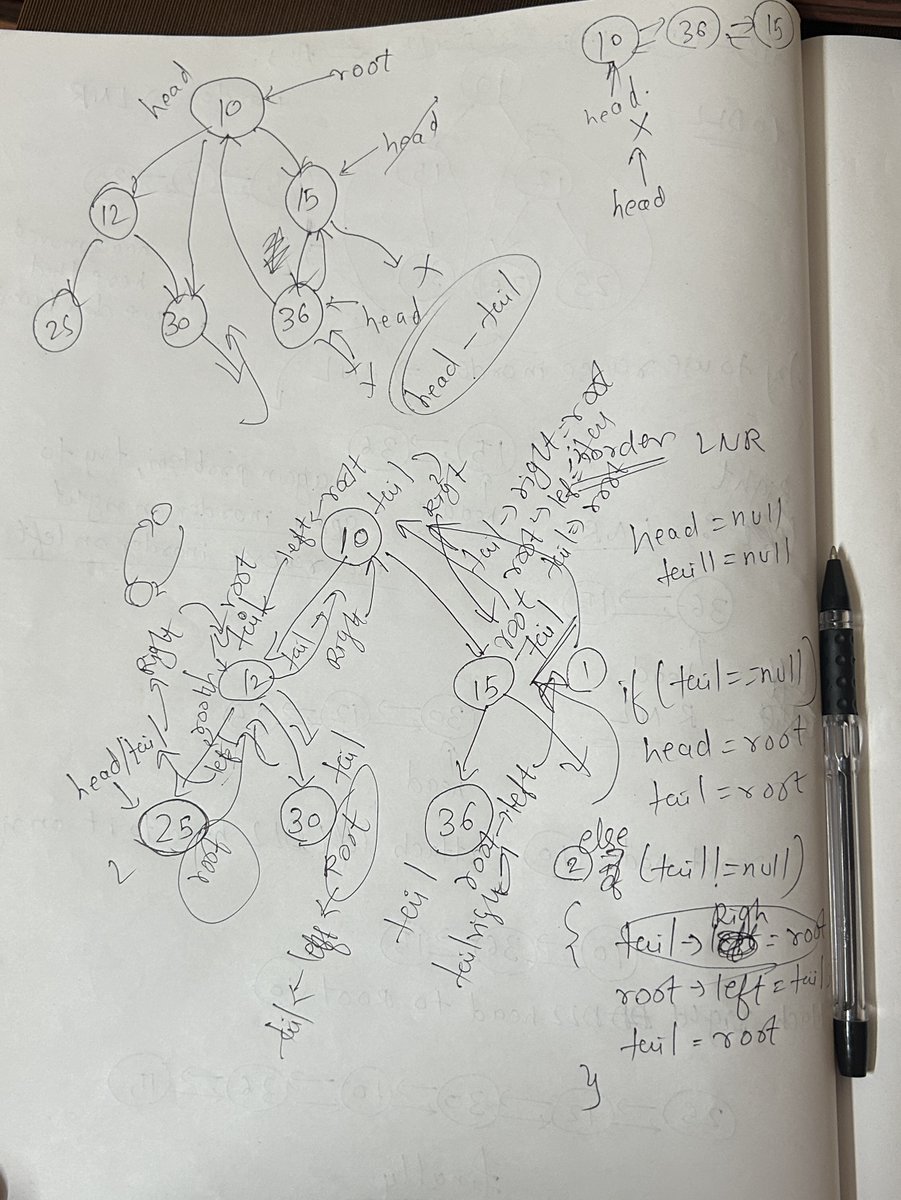 10 36 15
head.
X
head
head 10 root
head
12 15
X
25 30 36 head
X
X
head - tail
inorder LNR
tail → right = root
root → left = tail
tail = root
10 tail
Right
tail → left = root
head = null
tail = null
root
tail
tail → Right
Right
12
root
left
15
root
tail
1
head/tail
25
root
30 tail
Root
left
tail
36
tail
root → left
tail right
if (tail == null)
head = root
tail = root
2 else (tail != null)
{
tail → Righ = root
root → left = tail
tail = root
}